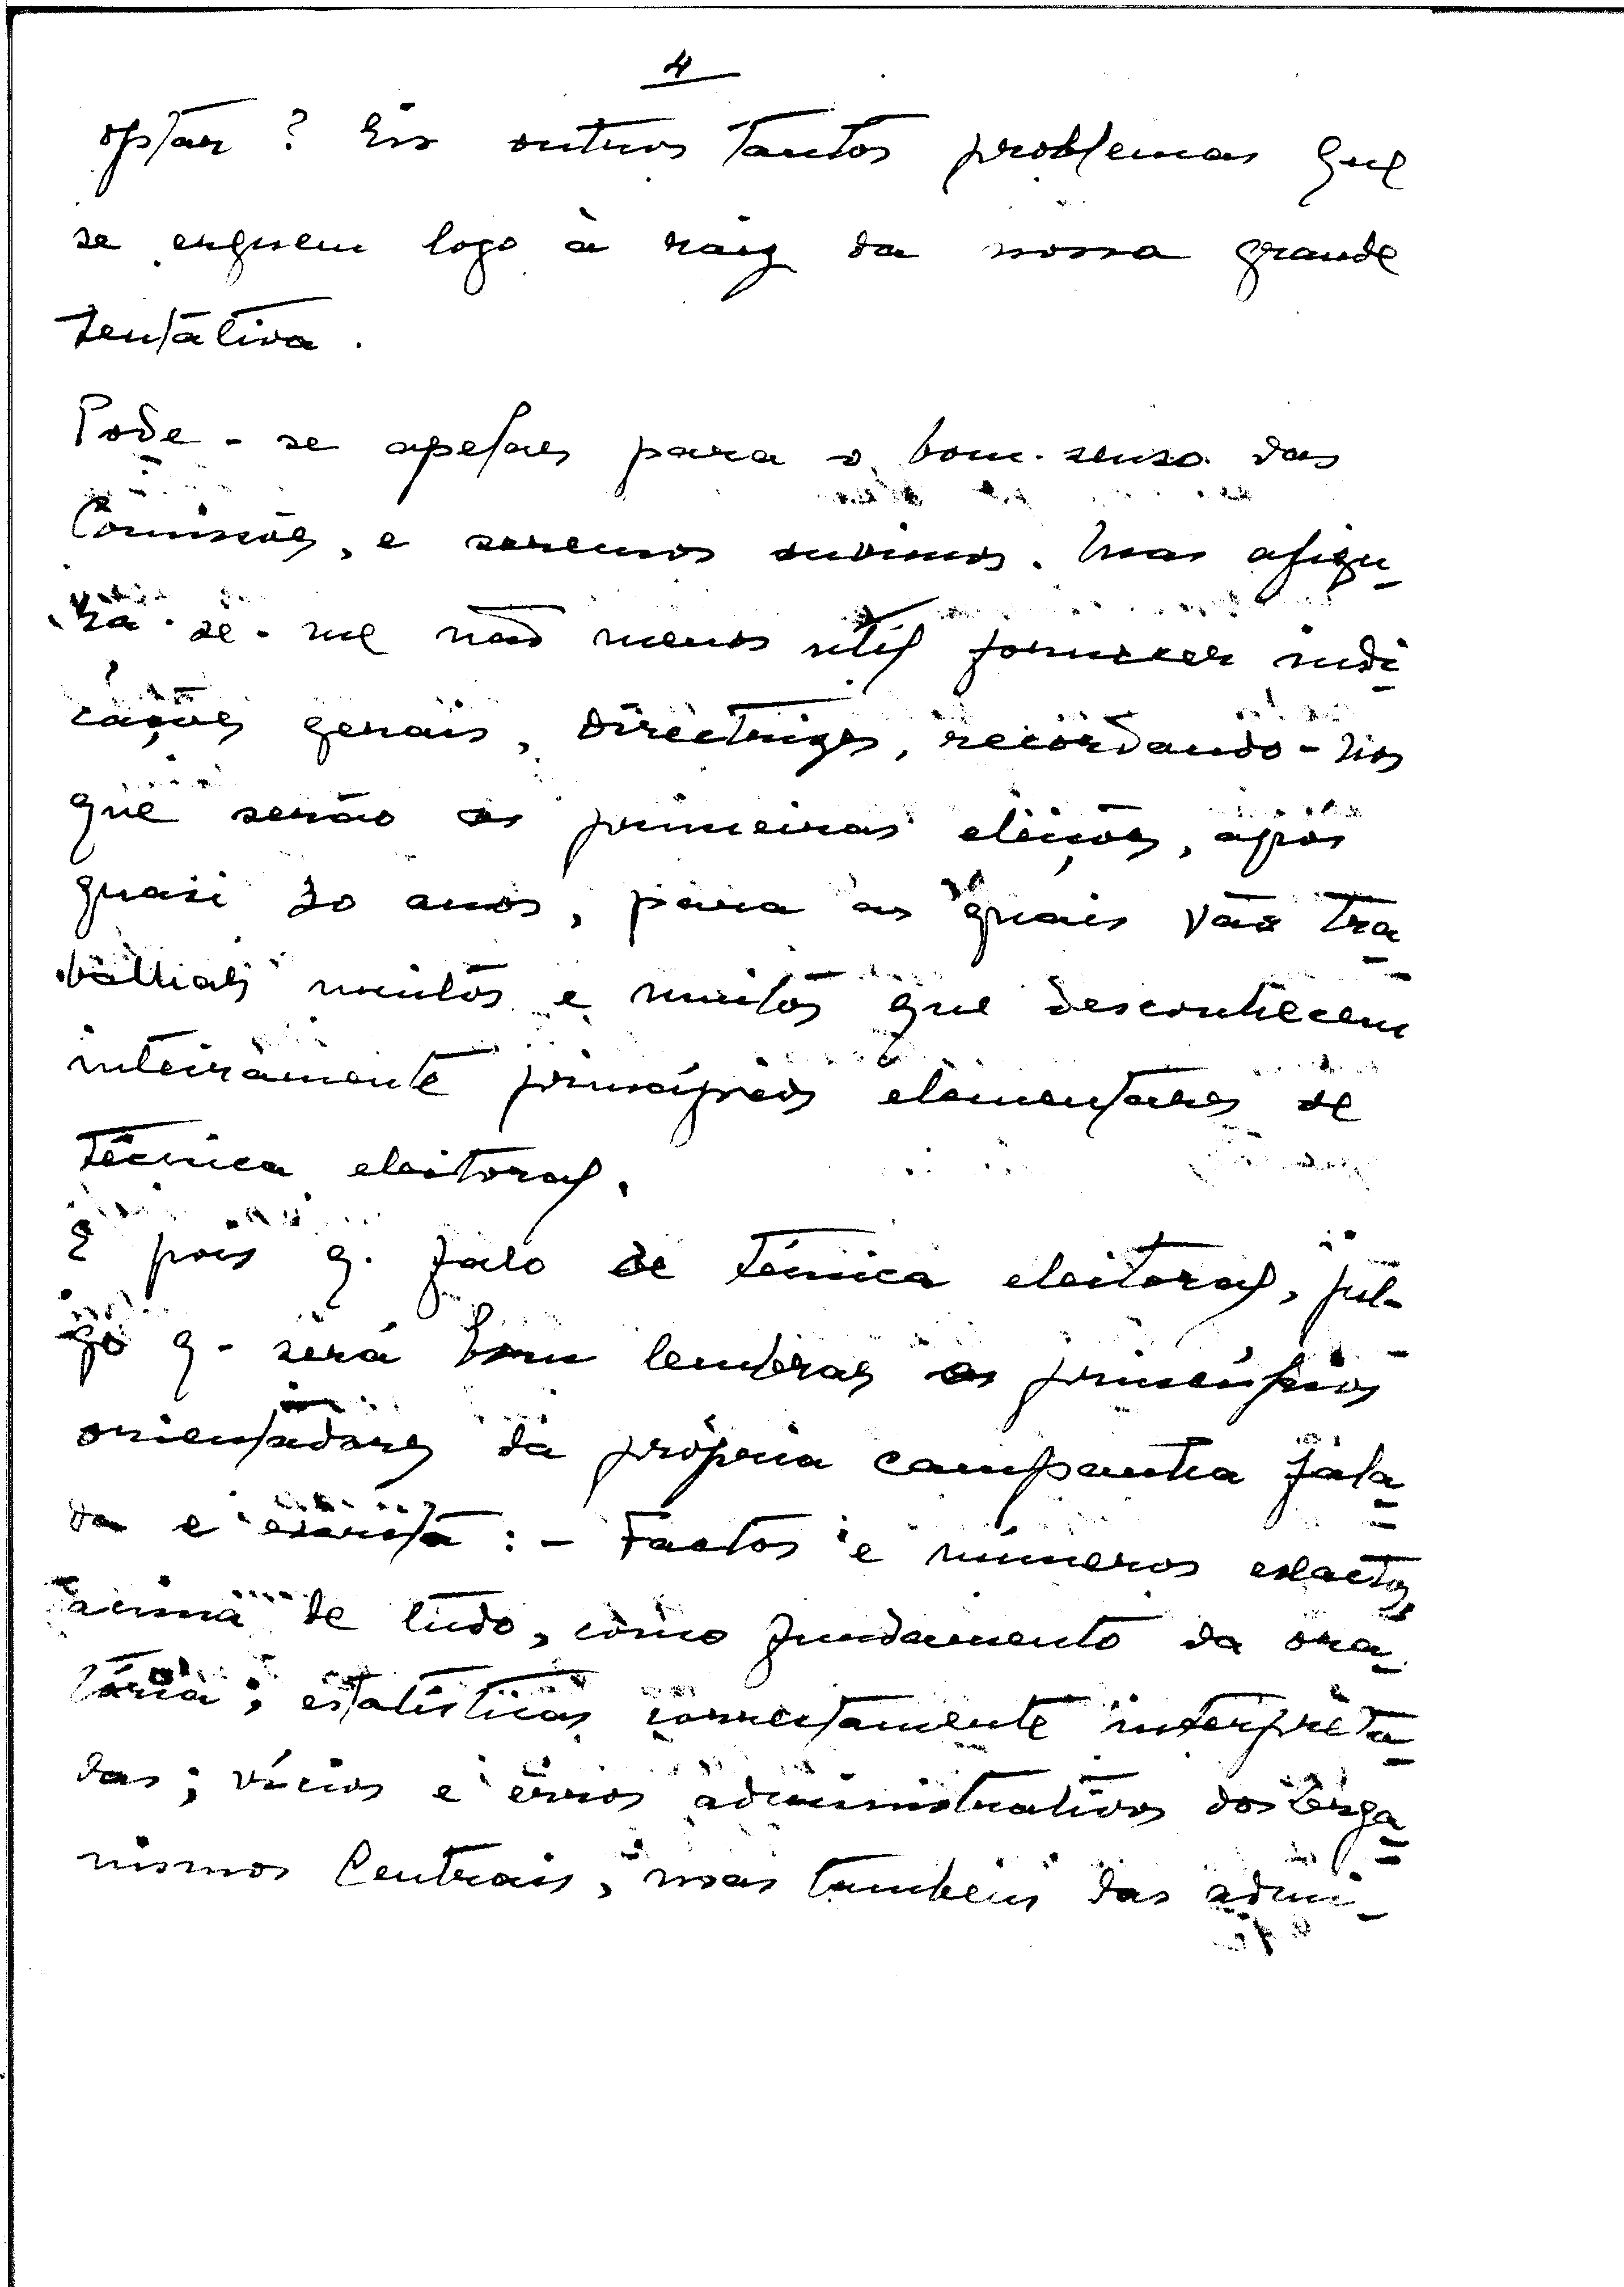 4
optar? Eis outros tantos problemas que
se erguem logo à raiz da nossa grande
tentativa.
Pode-se apelar para o bom-senso das
Comissões, e seremos ouvimos. Mas afigu-
ra-se-me não menos util fornecer indi-
cações gerais, directrizes, recordando-nos
que serão as primeiras eleições, após
quasi 20 anos, para as quais vão tra-
balhar muitos e muitos que desconhecem
inteiramente princípios elementares de
técnica eleitoral.
E pois q. falo de técnica eleitoral, jul-
go q. será bom lembrar os princípios
orientadores da própria campanha fala-
da e escrita: - Factos e números exactos,
acima de tudo, como fundamento da ora-
tória; estatísticas correctamente interpreta-
das; vícios e êrros administrativos dos Orga-
nismos Centrais, mas tambem das admi-